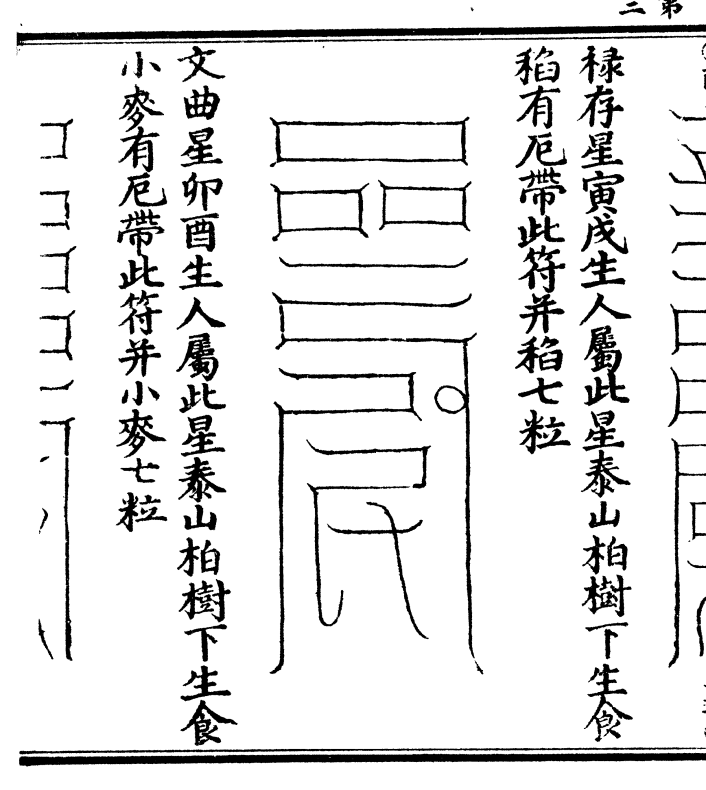 第二
禄存星寅戌生人屬此星泰山柏樹下生食
稻有厄帶此符并稻七粒
文曲星卯酉生人屬此星泰山柏樹下生食
小麥有厄帶此符并小麥七粒